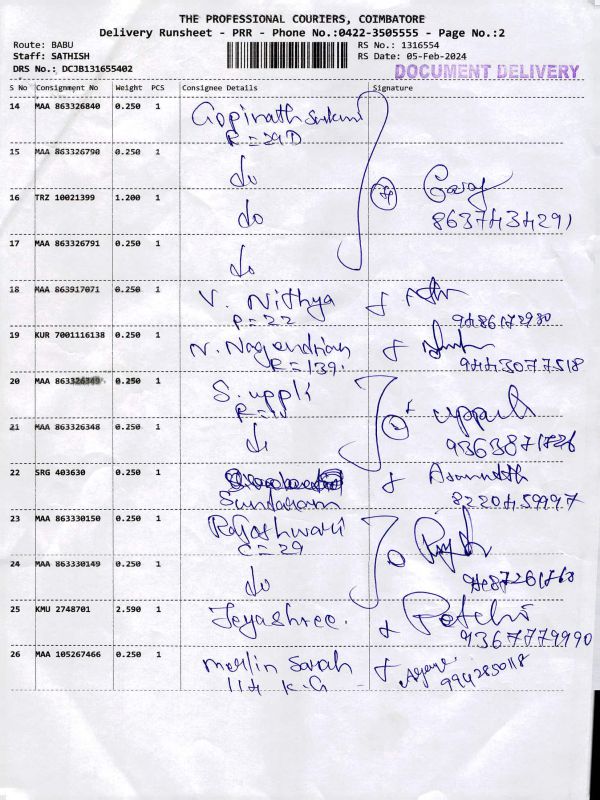 THE PROFESSIONAL COURIERS, COIMBATORE
Delivery Runsheet - PRR - Phone No.:0422-3505555 - Page No.:2
Route: BABU
Staff: SATHISH
DRS No.: DCJB131655402
RS No.: 1316554
RS Date: 05-Feb-2024
DOCUMENT DELIVERY
S No Consignment No Weight PCS Consignee Details Signature
14 MAA 863326840 0.250 1 Gopinath
R=29D
15 MAA 863326790 0.250 1 do
16 TRZ 10021399 1.200 1 do
8637434291
17 MAA 863326791 0.250 1 do
18 MAA 863917071 0.250 1 V. Nithya
R=22
19 KUR 7001116138 0.250 1 N. Nagendrian
R=139. 9443077518
20 MAA 863326349 0.250 1 S. uppli
21 MAA 863326348 0.250 1 do
9363871726
22 SRG 403630 0.250 1
Sundaram 8220459997
23 MAA 863330150 0.250 1 Rajashwari
C=29
24 MAA 863330149 0.250 1 do
25 KMU 2748701 2.590 1 Jeyashree. Petchi
9367779990
26 MAA 105267466 0.250 1 Merlin Sarah
114 K.G 9942850118